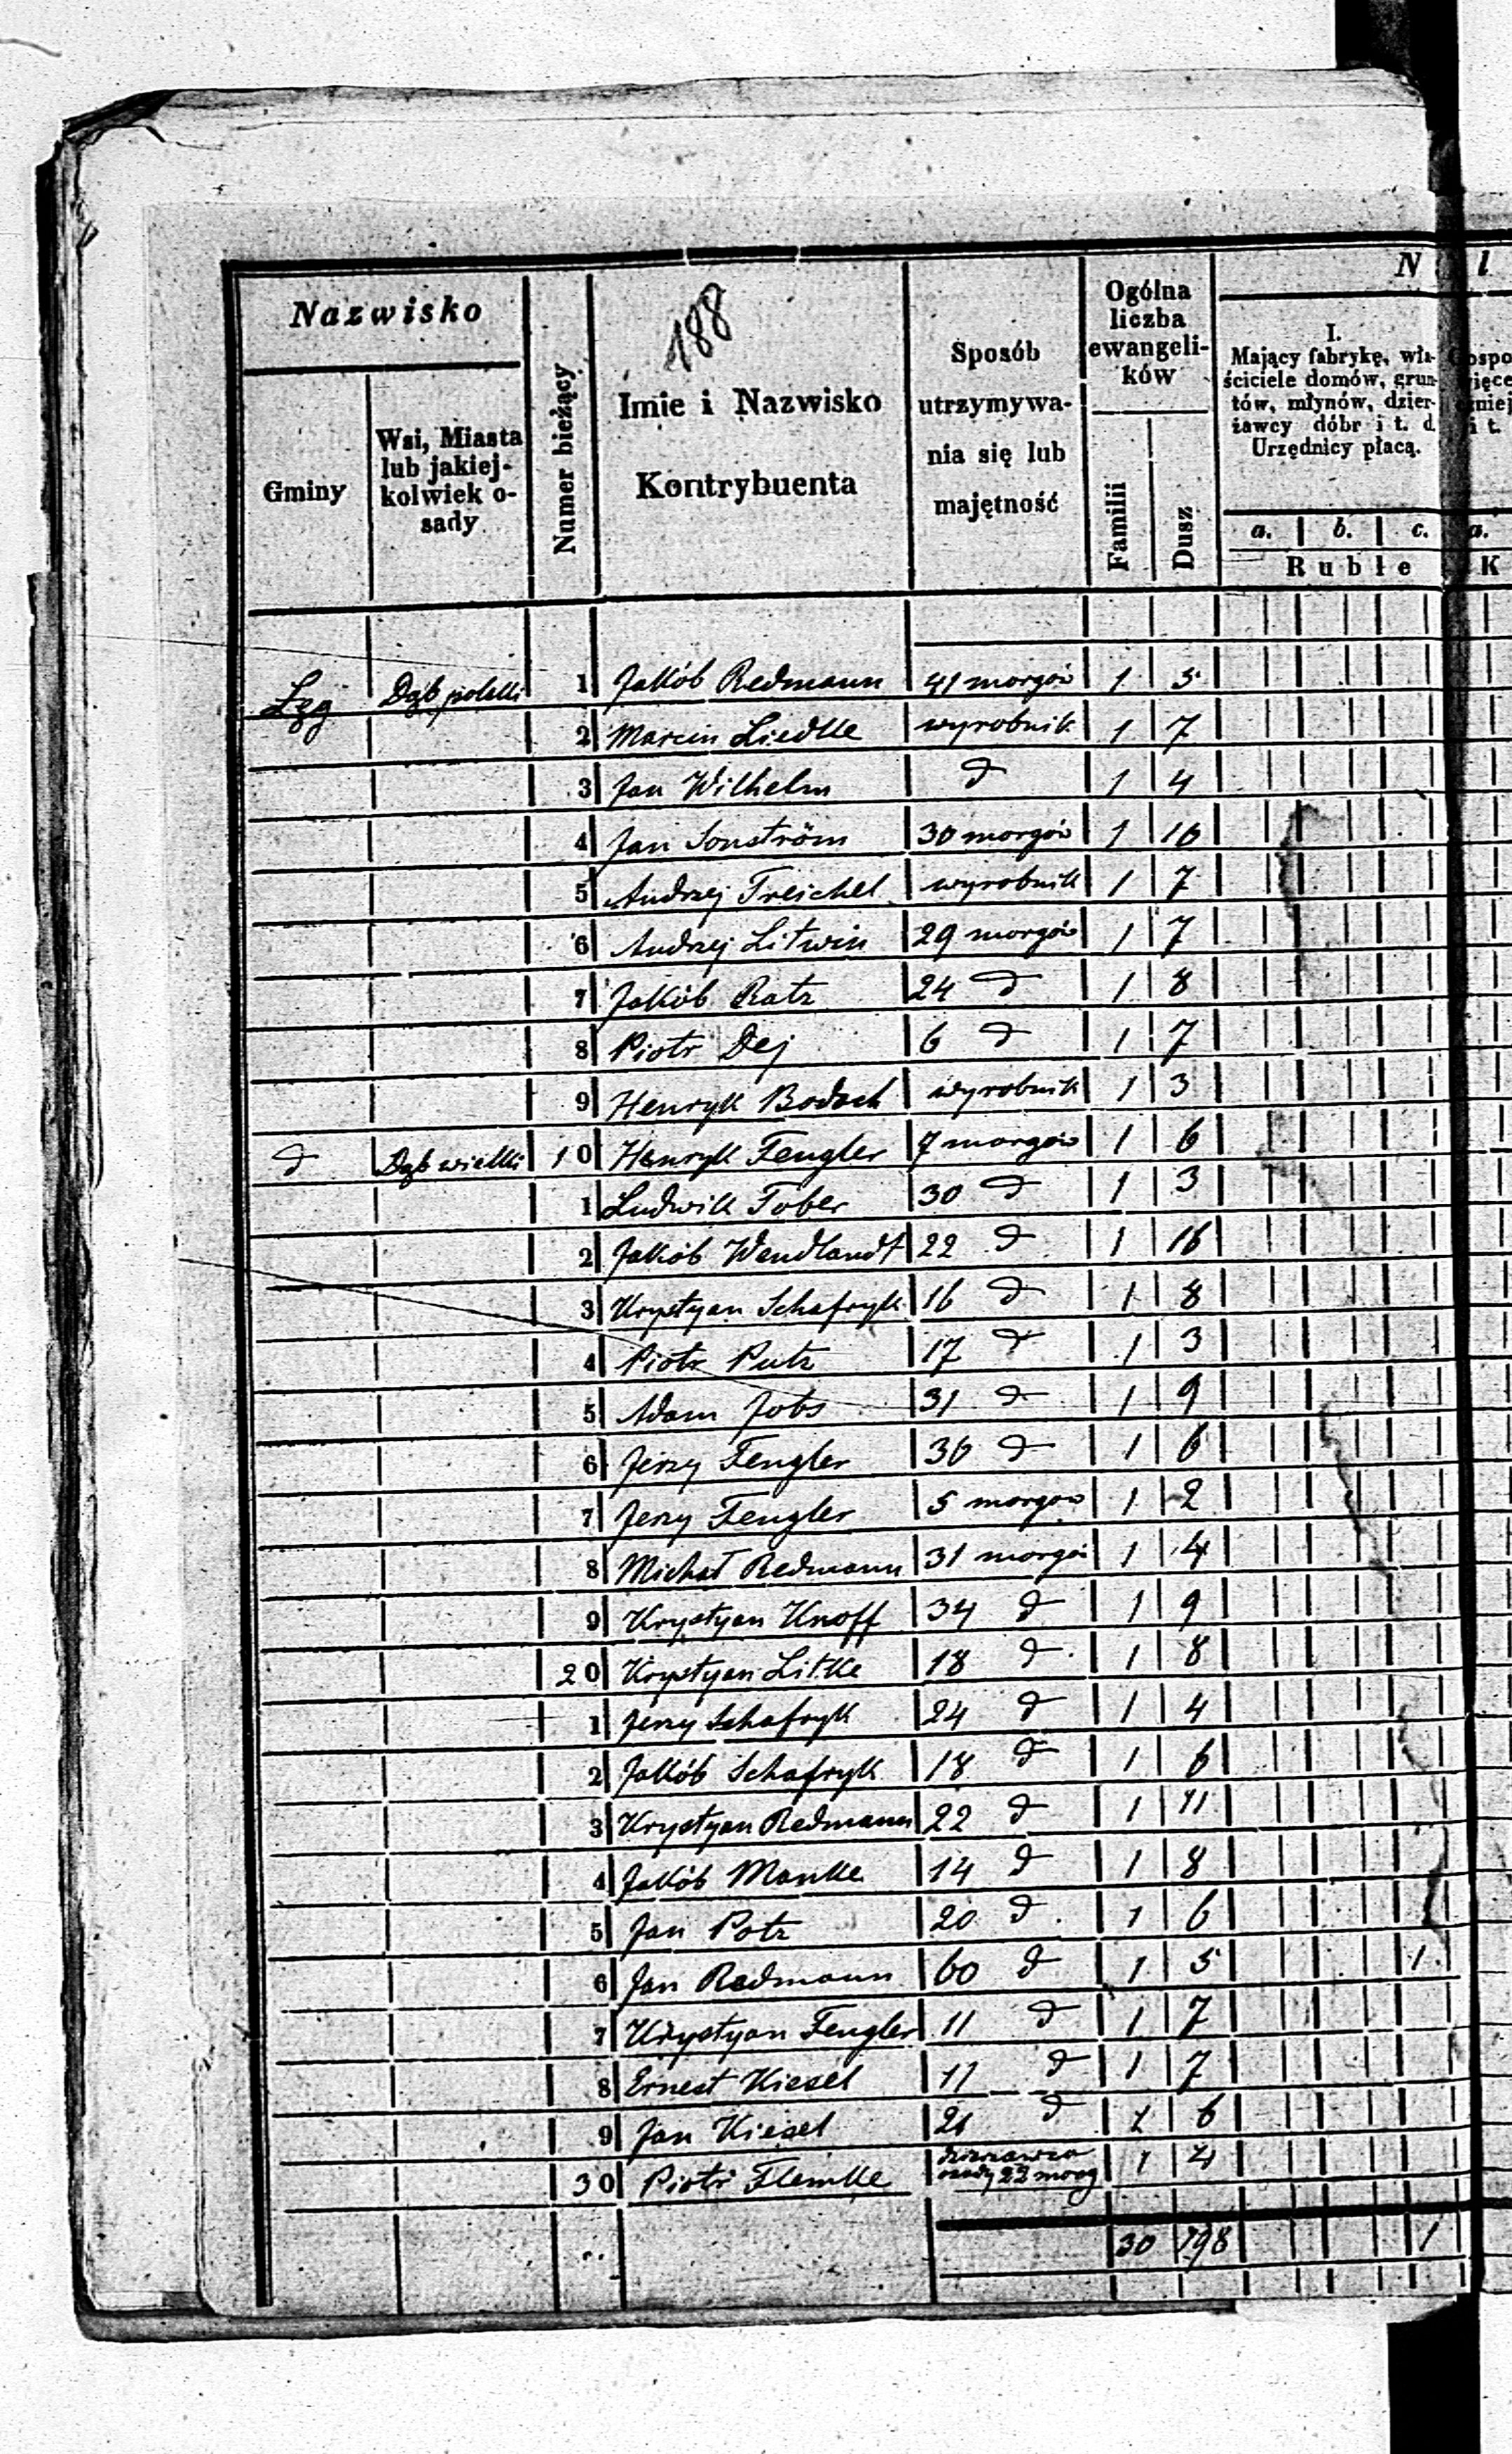 188
Nazwisko
Gminy
Wsi, Miasta
lub jakiej-
kolwiek o-
sady
Numer bieżący
Imie i Nazwisko
Kontrybuenta
Sposób
utrzymywa-
nia się lub
majętność
Ogólna
liczba
ewangeli-
ków
Familii
Dusz
N
I.
Mający fabrykę, wła-
ściciele domów, grun-
tów, młynów, dzier-
żawcy dóbr i t. d.
Urzędnicy płacą.
a. b. c. a.
Ruble K
Łęg Dąb polski 1 Jakób Redmann 41 morgów 1 5
2 Marcin Liedke wyrobnik 1 7
3 Jan Wilhelm d 1 4
4 Jan Sonström 30 morgów 1 16
5 Andrzej Treichel wyrobnik 1 7
6 Andrzej Litwin 29 morgów 1 7
7 Jakób Ratz 24 d 1 8
8 Piotr Dej 6 d 1 7
9 Henryk Bodach wyrobnik 1 3
d Dąb wielki 10 Henryk Fengler 7 morgów 1 6
1 Ludwik Tober 30 d 1 3
2 Jakób Wendlandt 22 d 1 16
3 Krystyan Schafryk 16 d 1 8
4 Piotr Putz 17 d 1 3
5 Adam Jobs 31 d 1 9
6 Jerzy Fengler 36 d 1 6
7 Jerzy Fengler 5 morgów 1 2
8 Michał Redmann 31 morgów 1 4
9 Krystyan Knoff 34 d 1 9
20 Krystyan Litke 18 d 1 8
1 Jerzy Schafryk 24 d 1 4
2 Jakób Schafryk 18 d 1 6
3 Krystyan Redmann 22 d 1 11
4 Jakób Manke 14 d 1 8
5 Jan Potz 20 d 1 6
6 Jan Redmann 60 d 1 5 1
7 Krystyan Fengler 11 d 1 7
8 Ernest Kiesel 11 d 1 7
9 Jan Kiesel 21 d 1 6
30 Piotr Flemke dzierzawca
osady 23 morg 1 4
30 198 1